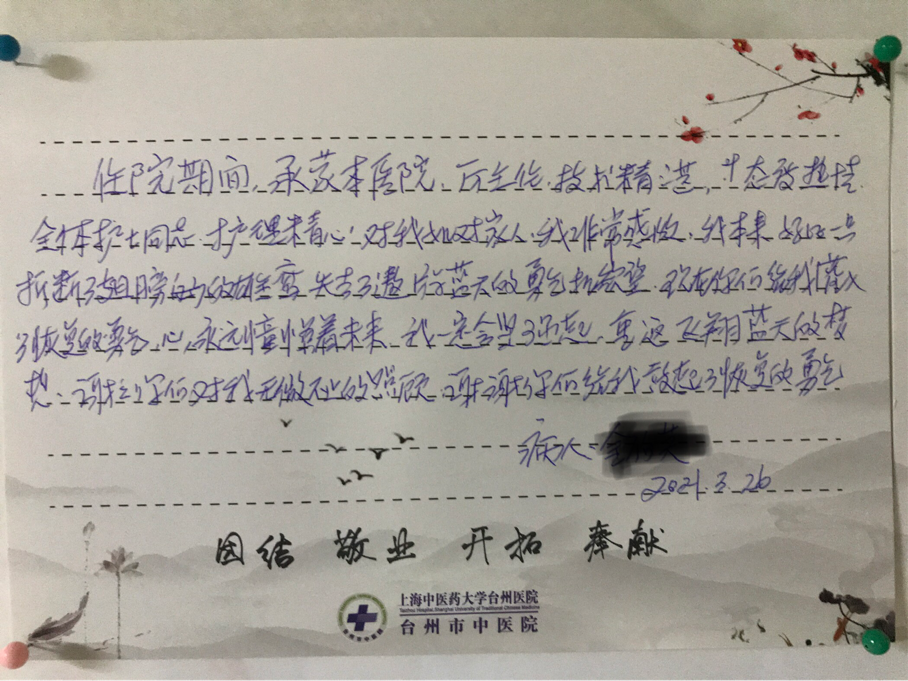 住院期间，承蒙本医院，医生们，技术精湛，态度热情
全体护士同志，护理精心，对我如对家人，我非常感激，我本来好比一只
折断了翅膀的 失去了遨 蓝天的勇气和希望，现在你们给我灌入
了恢复的勇气，心永远憧憬着未来，我一定会坚强起，重返飞翔蓝天的梦
想，谢谢你们对我无微不至的照顾，谢谢你们给我鼓起了恢复的勇气
病人：
2021.3.26
团结 敬业 开拓 奉献
上海中医药大学台州医院
Taizhou Hospital, Shanghai University of Traditional Chinese Medicine
台州市中医院